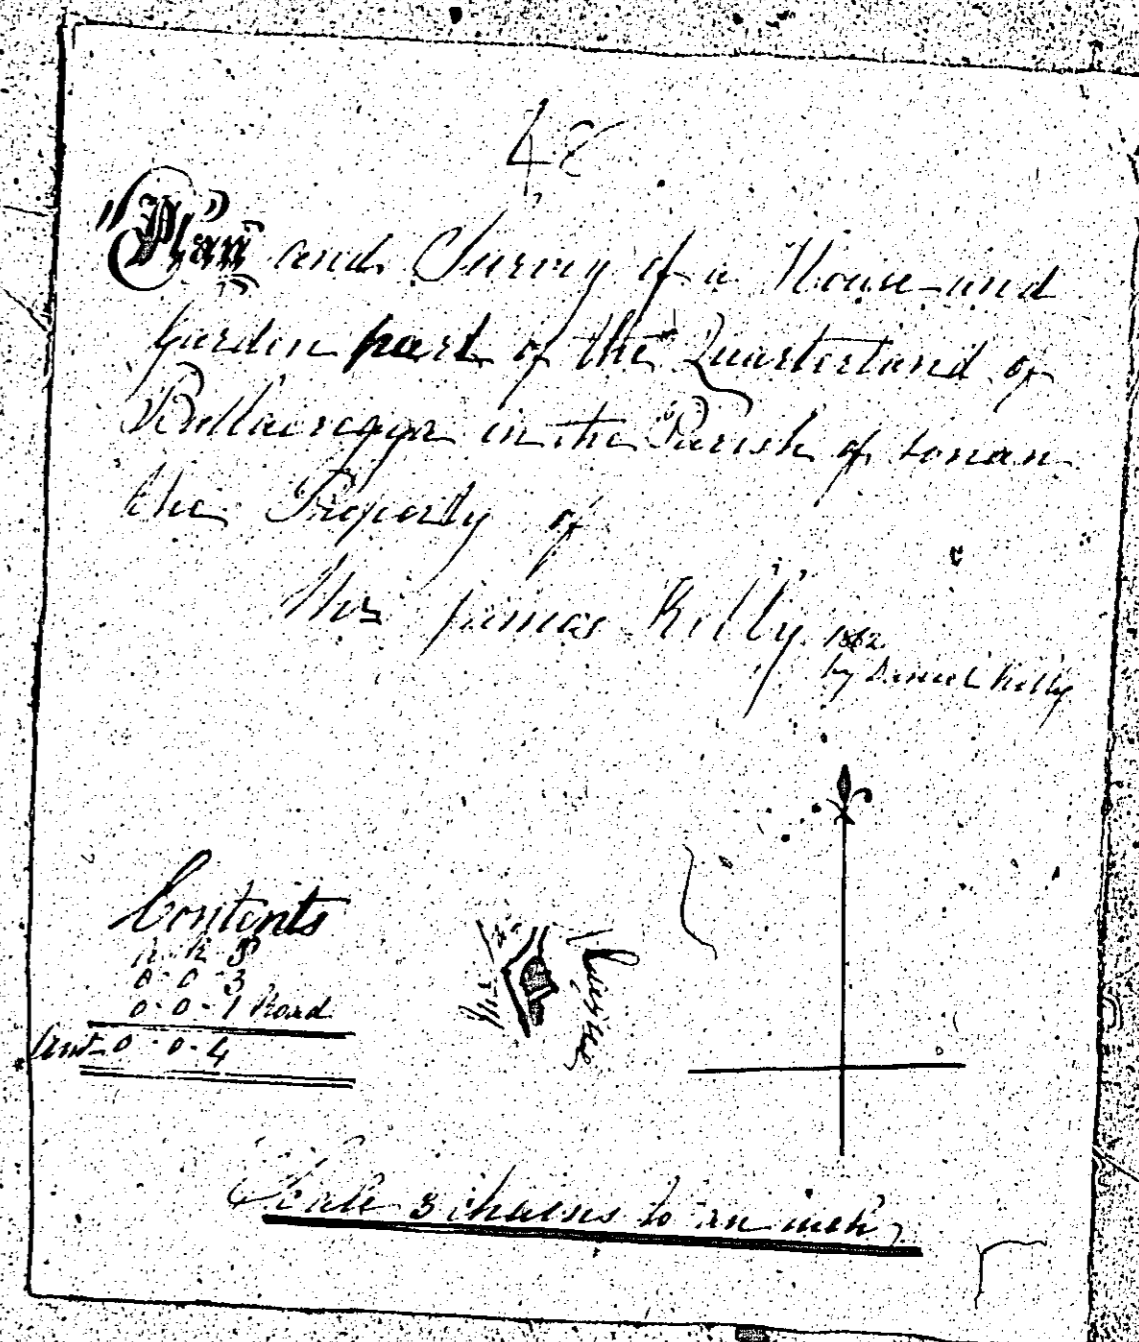 48
"Plan" and Survey of a House and
garden part of the Quarterland of
Ballacregga in the Parish of Lonan
the Property of
Mrs James Kelly 1862
by Daniel Kelly
Contents
A. R. P
0-0-3
0-0-1 Road
0-0-4
Scale 3 chains to an inch